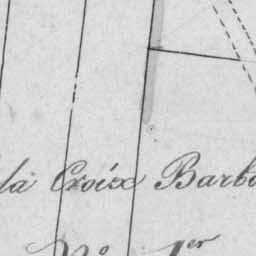 la Croix Barb
N° 1er